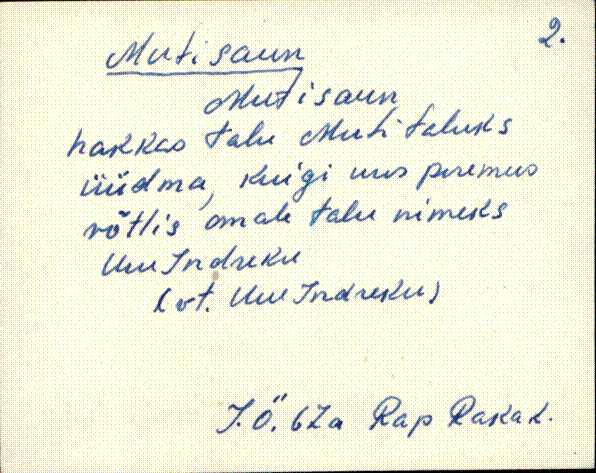 2.
Mutisaun
Mutisaun
hakkas talu Muti taluks
üüdma, kuigi uus peremees
võtlis omale talu nimeks
Uue Indreku
(vt. Uue Indreku)
J.Ö. Rap Rakak.